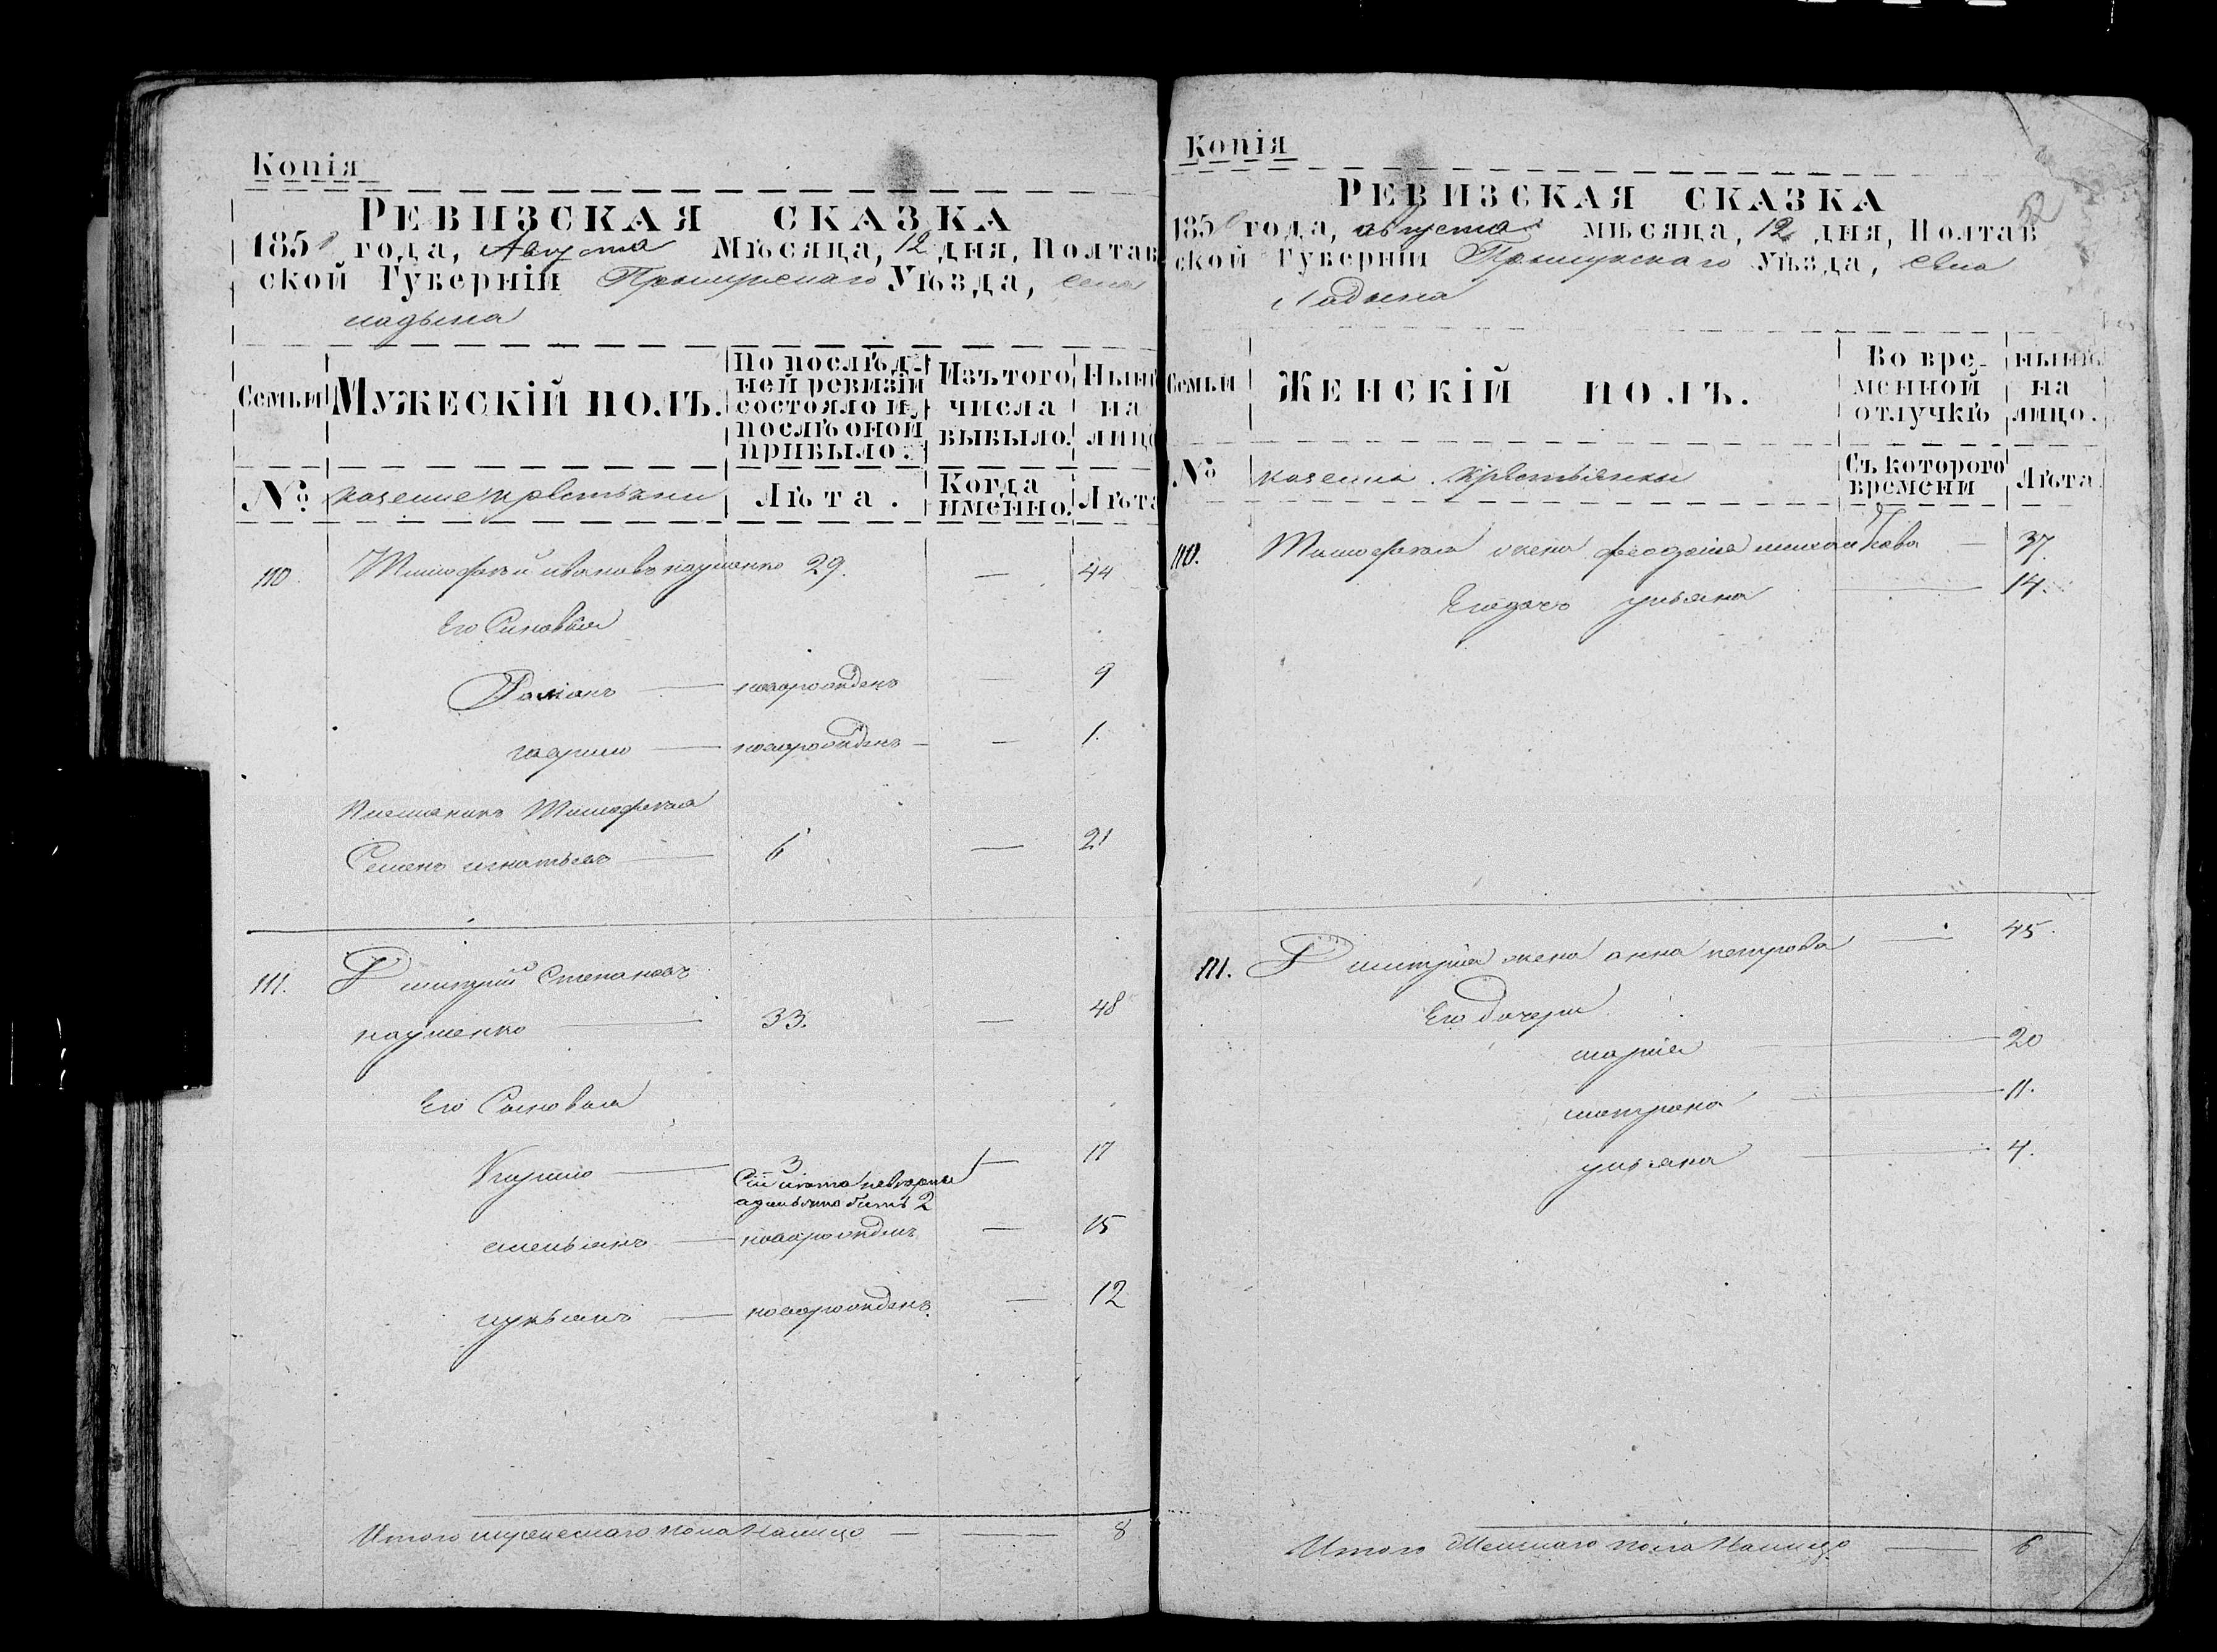 Копія
РЕВИЗСКАЯ СКАЗКА
185 года, Августа Мѣсяца, 12 дня, Полтав
ской Губерніи Прилукскаго Уѣзда, села
ладына
Семьи
МУЖЕСКІЙ ПОЛЪ.
По послѣд-
ней ревизіи
состояло и
послѣ оной
прибыло.
Изъ того
числа
выбыло.
Нын
на
лицо
№
казение крестьяни
Лѣта.
Когда
именно.
Лѣта
110 Тимофѣй ивановъ науменко 29. — 44
Его Синовья
новорожденъ — 9
гаврило — новорожденъ — — 1.
Племяникъ Тимофѣя
Семенъ игнатьевъ — 6 — 21
111. Дмитрий Степановъ
науменко — 33. — 48
Его Сыновья
Кирило — 3 — 17
Сіи лѣта невѣрни
а должно бить 2
емельянъ — новорожденъ — 15
лукьянъ — новорожденъ — 12
Итого мужескаго пола Налицо — — 8
Копія
52
РЕВИЗСКАЯ СКАЗКА
185 года, августа мѣсяца, 12 дня, Полтав
ской Губерніи Прилукскаго Уѣзда, села
Ладына
Семьи
ЖЕНСКІЙ ПОЛЪ.
Во вре-
менной
отлучкѣ
нынѣ
на
лицо.
№
казенни крестьянки
Съ котораго
времени
Лѣта
110. Тимофѣя жена феодосия михайлова — 37
Его дочь ульяна — 14.
111. Дмитрия жена анна петрова — 45.
Его дочери
мария — 20
матрона — 11.
ульяна — 4.
Итого Женскаго пола Налицо — 6